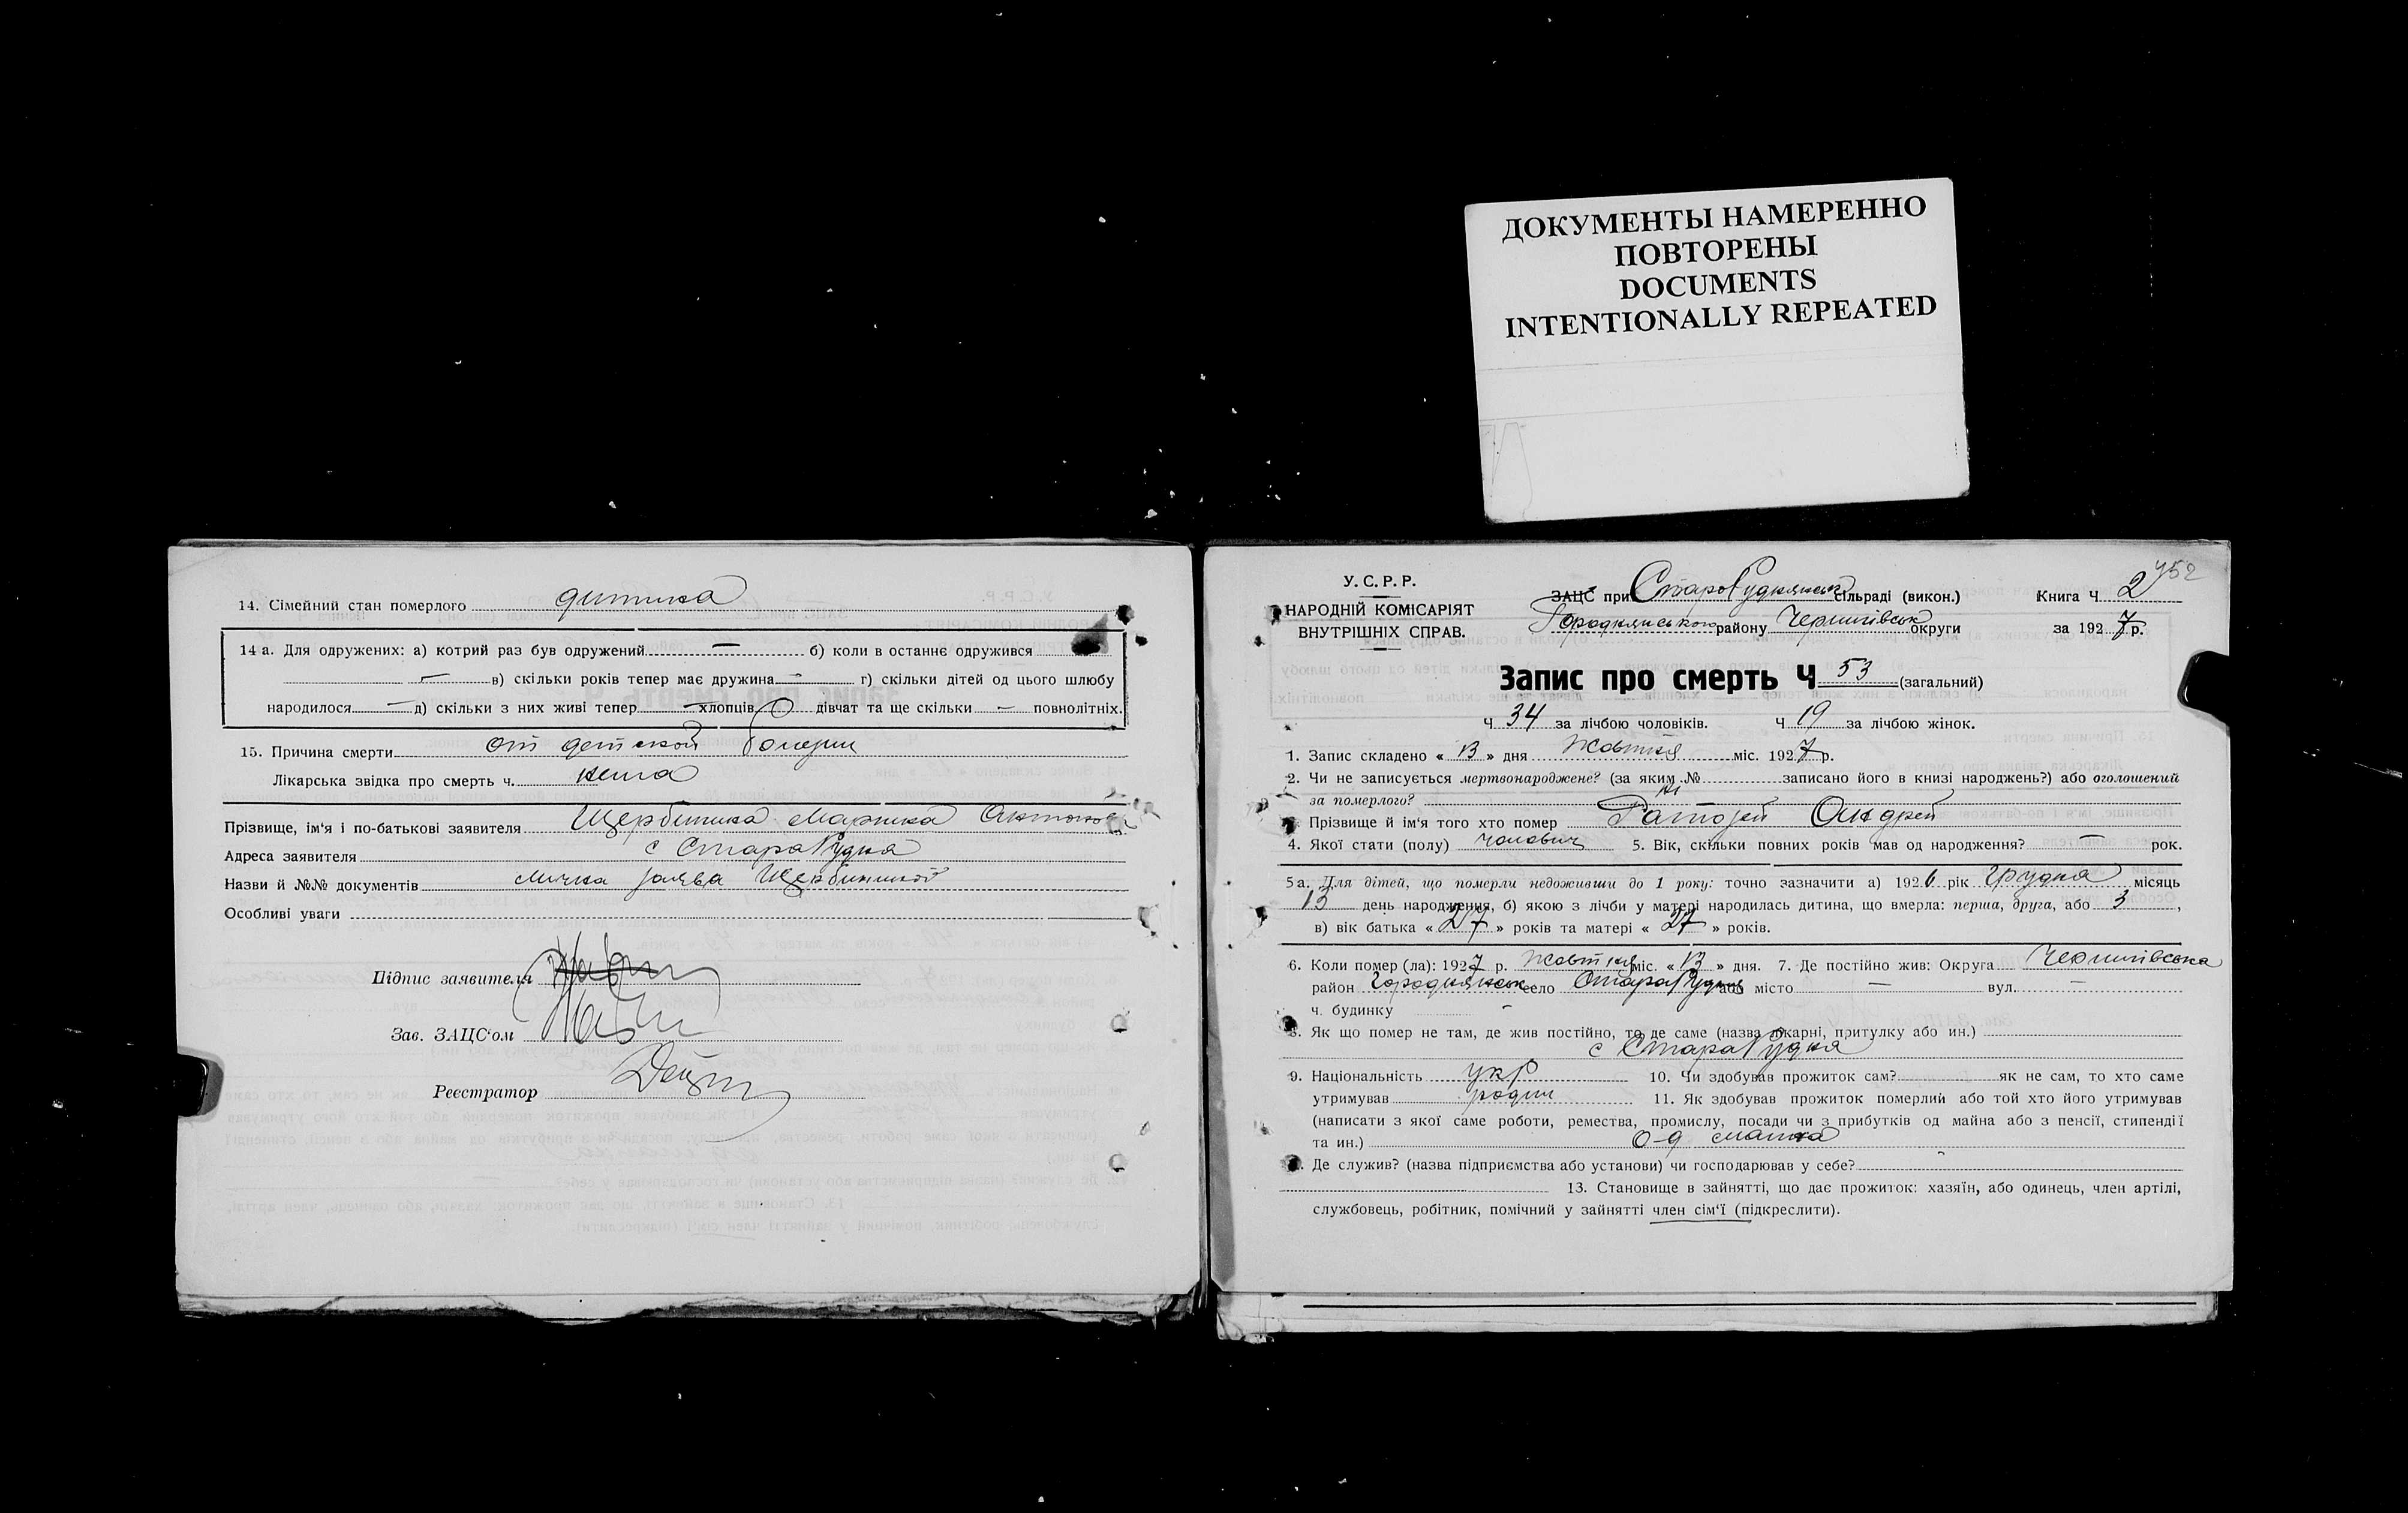 ДОКУМЕНТЫ НАМЕРЕННО
ПОВТОРЕНЫ
DOCUMENTS
INTENTIONALLY REPEATED
14. Сімейний стан померлого дитина
14 а. Для одружених: а) котрий раз був одружений — б) коли в останнє одружився
— в) скільки років тепер має дружина — г) скільки дітей од цього шлюбу
народилося — д) скільки з них живі тепер — хлопців О дівчат та ще скільки — повнолітніх.
15. Причина смерти от детской болезни
Лікарська звідка про смерть ч. нема
Прізвище, ім'я і по-батькові заявителя Щербинина Марина
Адреса заявителя с Стара Рудня
Назви й №№ документів лична заява Щербининой
Особливі уваги
Підпис заявителя
Зав. ЗАЦС'ом
Реєстратор
952
У. С. Р. Р.
НАРОДНІЙ КОМІСАРІЯТ
ВНУТРІШНІХ СПРАВ.
ЗАЦС при СтароРуднянськ сільраді (викон.) Книга Ч 2
Городнянського району Чернигівськ округи за 1927 р.
Запис про смерть Ч 53 (загальний)
Ч 34 за лічбою чоловіків. Ч 19 за лічбою жінок.
1. Запис складено « 13 » дня Жовтня міс. 1927 р.
2. Чи не записується мертвонароджене? (за яким № записано його в книзі народжень?) або оголошений
за померлого? Ні
3. Прізвище й ім'я того хто помер Андрей
4. Якої стати (полу) чоловіч 5. Вік, скільки повних років мав од народження? — рок.
5 а. Для дітей, що померли недоживши до 1 року: точно зазначити а) 1926 рік Грудня місяць
13 день народження, б) якою з лічби у матері народилась дитина, що вмерла: перша, друга, або 3,
в) вік батька « 27 » років та матері « 27 » років.
6. Коли помер (ла): 1927 р. Жовтня міс. « 13 » дня. 7. Де постійно жив: Округа Чернигівська
район Городнянськ село Стара Рудня або місто — вул. —
ч. будинку -
8. Як що помер не там, де жив постійно, то де саме (назва лікарні, притулку або ин.)
с Стара Рудня
9. Національність укр 10. Чи здобував прожиток сам? як не сам, то хто саме
утримував родин 11. Як здобував прожиток померлий або той хто його утримував
(написати з якої саме роботи, ремества, промислу, посади чи з прибутків од майна або з пенсії, стипендії
та ин.) О-д
12. Де служив? (назва підприємства або установи) чи господарював у себе? -
13. Становище в зайнятті, що дає прожиток: хазяїн, або одинець, член артілі,
службовець, робітник, помічний у зайнятті член сім'ї (підкреслити).